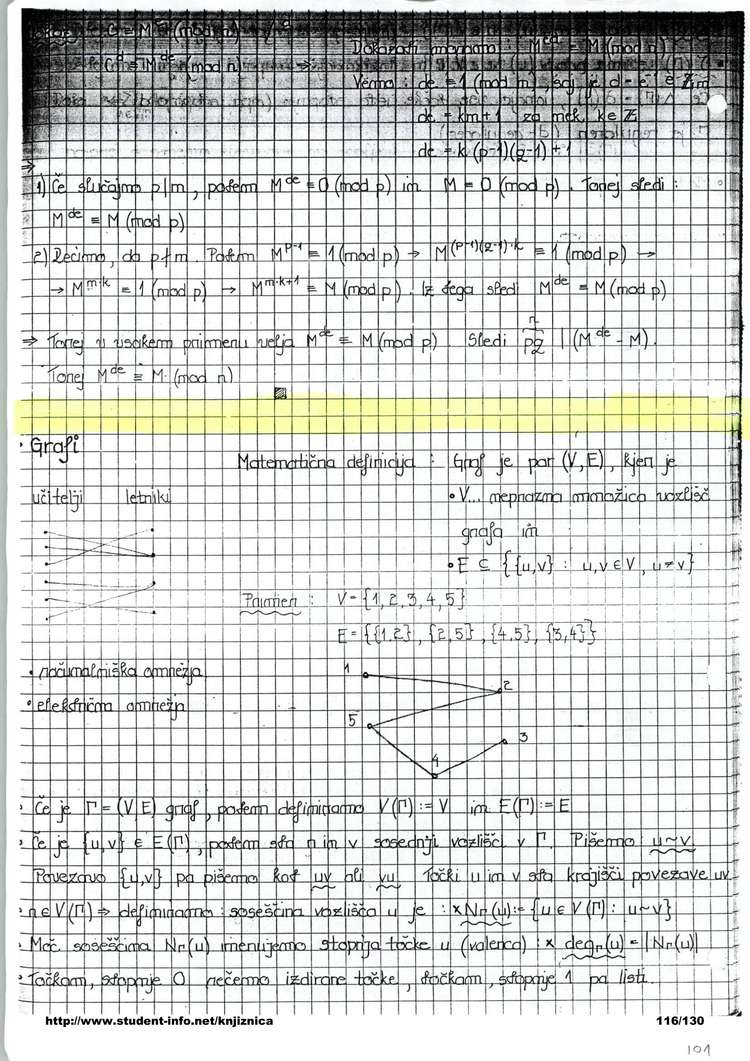 Dokazati moramo : M^ed ≡ M (mod n)
C^d ≡ M^de (mod n)
Vemo : de ≡ 1 (mod m), saj je d = e^-1 ∈ Z_m
de = km+1 za nek k∈Z
de = k (p-1)(q-1) + 1
⇒
1) Če slučajno p|m, potem M^de ≡ 0 (mod p) in M ≡ 0 (mod p). Torej sledi :
M^de ≡ M (mod p)
2) Recimo, da p∤m. Potem M^p-1 ≡ 1 (mod p) → M^(p-1)(q-1)·k ≡ 1 (mod p) →
→ M^m·k ≡ 1 (mod p) → M^m·k+1 ≡ M (mod p). Iz tega sledi M^de ≡ M (mod p)
⇒ Torej v vsakem primeru velja M^de ≡ M (mod p). Sledi pq | (M^de - M).
n
Torej M^de ≡ M (mod n)
• Grafi
Matematična definicija : Graf je par (V,E), kjer je
učitelji letniki
• V... neprazna množica vozlišč
grafa in
• E ⊆ {{u,v} : u,v ∈ V, u≠v}
Primer : V = {1,2,3,4,5}
E = {{1,2}, {2,5}, {4,5}, {3,4}}
• računalniška omrežja
1
2
• električna omrežja
5
3
4
• Če je Γ = (V,E) graf, potem definiramo V(Γ) := V in E(Γ) := E
• Če je {u,v} ∈ E(Γ), potem sta u in v sosednji vozlišči v Γ. Pišemo : u~v
Povezavo {u,v} pa pišemo kot uv ali vu. Točki u in v sta krajišči povezave uv
• u∈V(Γ) ⇒ definiramo : soseščina vozlišča u je : × N_Γ(u) := {u ∈ V(Γ) : u~v}
• Moč soseščine N_Γ(u) imenujemo stopnja točke u (valenca) : × deg_Γ(u) = |N_Γ(u)|
• Točkam, stopnje 0 rečemo izolirane točke, točkam, stopnje 1 pa listi.
http://www.student-info.net/knjiznica 116/130
101